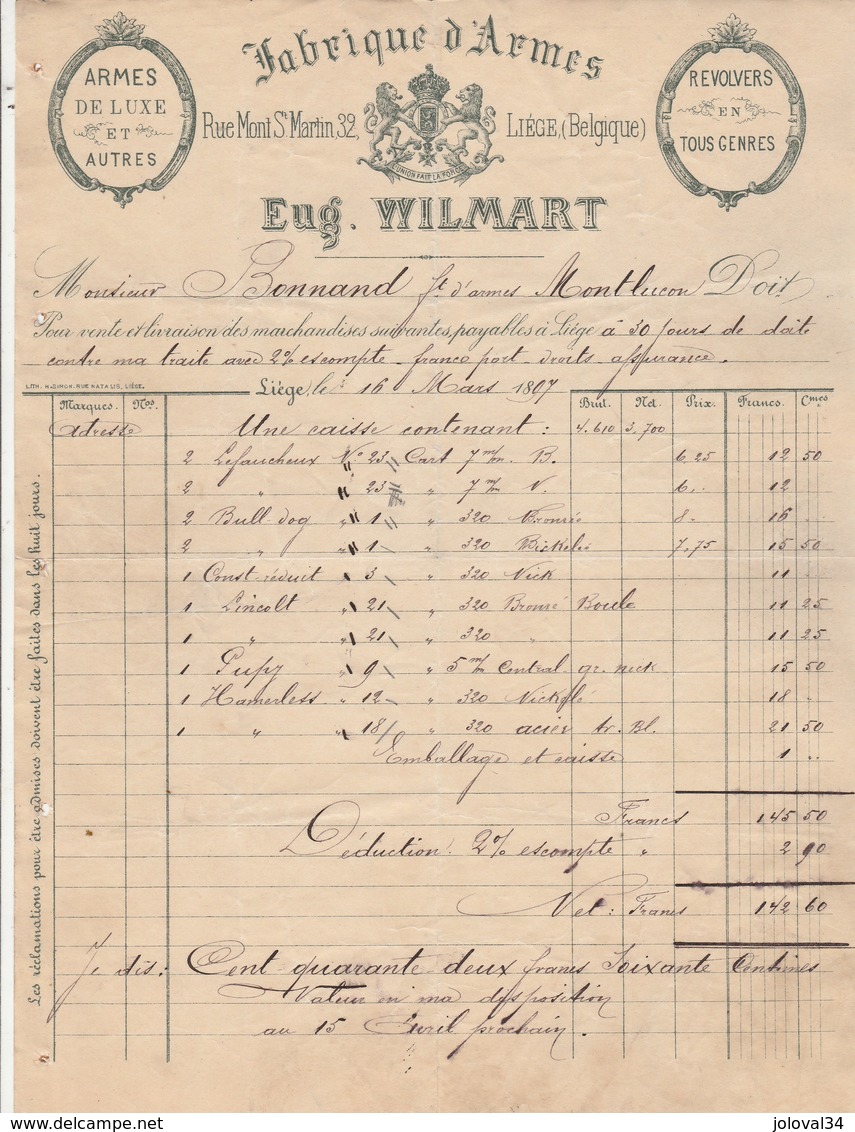 Fabrique d'Armes
ARMES
DE LUXE
ET
AUTRES
Rue Mont St Martin, 32, LIÉGE, (Belgique)
L'UNION FAIT LA FORCE
REVOLVERS
EN
TOUS GENRES
Eug. WILMART
Monsieur Bonnand ft d'armes Montlucon Doit
Pour vente et livraison des marchandises suivantes, payables à Liége à 30 jours de date
contre ma traite avec 2% escompte franco port droits assurance.
LITH. H. SIMON. RUE NATALIS, LIÉGE.
Liége, le 16 Mars 1897
Marques. Nos. Brut. Net. Prix. Francs. Cmes
adresse Une caisse contenant : 4.610 3,700
2 Lefaucheux No 23 Cart 7 m/m B. 6,25 12 50
2 " " 23 " 7 m/m N. 6,. 12
2 Bull-dog " 1 " 320 Bronzé 8 - 16 ..
2 " " 1 " 320 Nickelé 7,75 15 50
1 Const-réduit " 3 " 320 Nick 11 ..
1 Lincolt " 21 " 320 Bronzé Boule 11 25
1 " " 21 " 320 " 11 25
1 Pupy " 9 " 5 m/m Central gr. nick 15 50
1 Hamerless " 12 " 320 Nickelé 18 "
1 " " 18/0 " 320 acier tr. Bl. 21 50
Emballage et caisse 1 ..
Francs 145 50
Déduction 2% escompte " 2 90
Net : Francs 142 60
Je dis : Cent quarante deux francs Soixante Centimes
Valeur en ma disposition
au 15 Avril prochain.
Les réclamations pour être admises doivent être faites dans les huit jours.
delcampe.net
joloval34